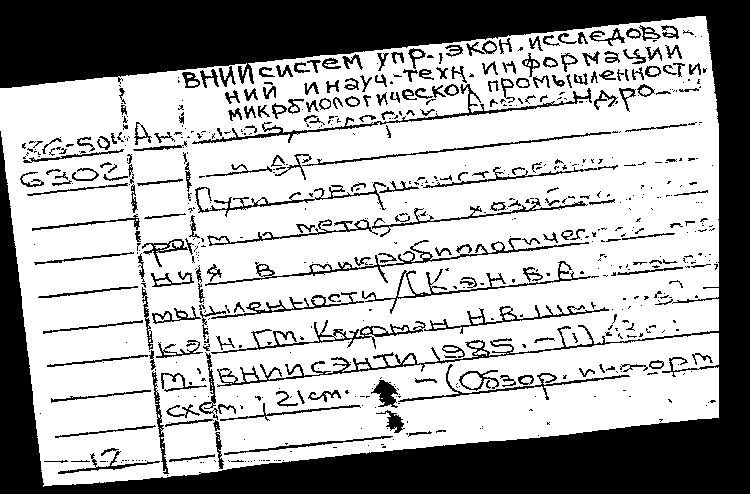 ВНИИ систем упр., экон. исследова-
ний и науч.-техн. информации
микробиологической промышленности.
86-50к Антонов, Валерий Александро
6302 и др.
Пути совершенствова
форм и методов хозяйст
ния в микробиологической про
мышленности / [К.э.н. В.А. Антонов,
к.э.н. Г.М. Кауфман, Н.В.
М.: ВНИИСЭНТИ, 1985. - [1], 43 с.:
схем.; 21 см. - (Обзор. информ
12